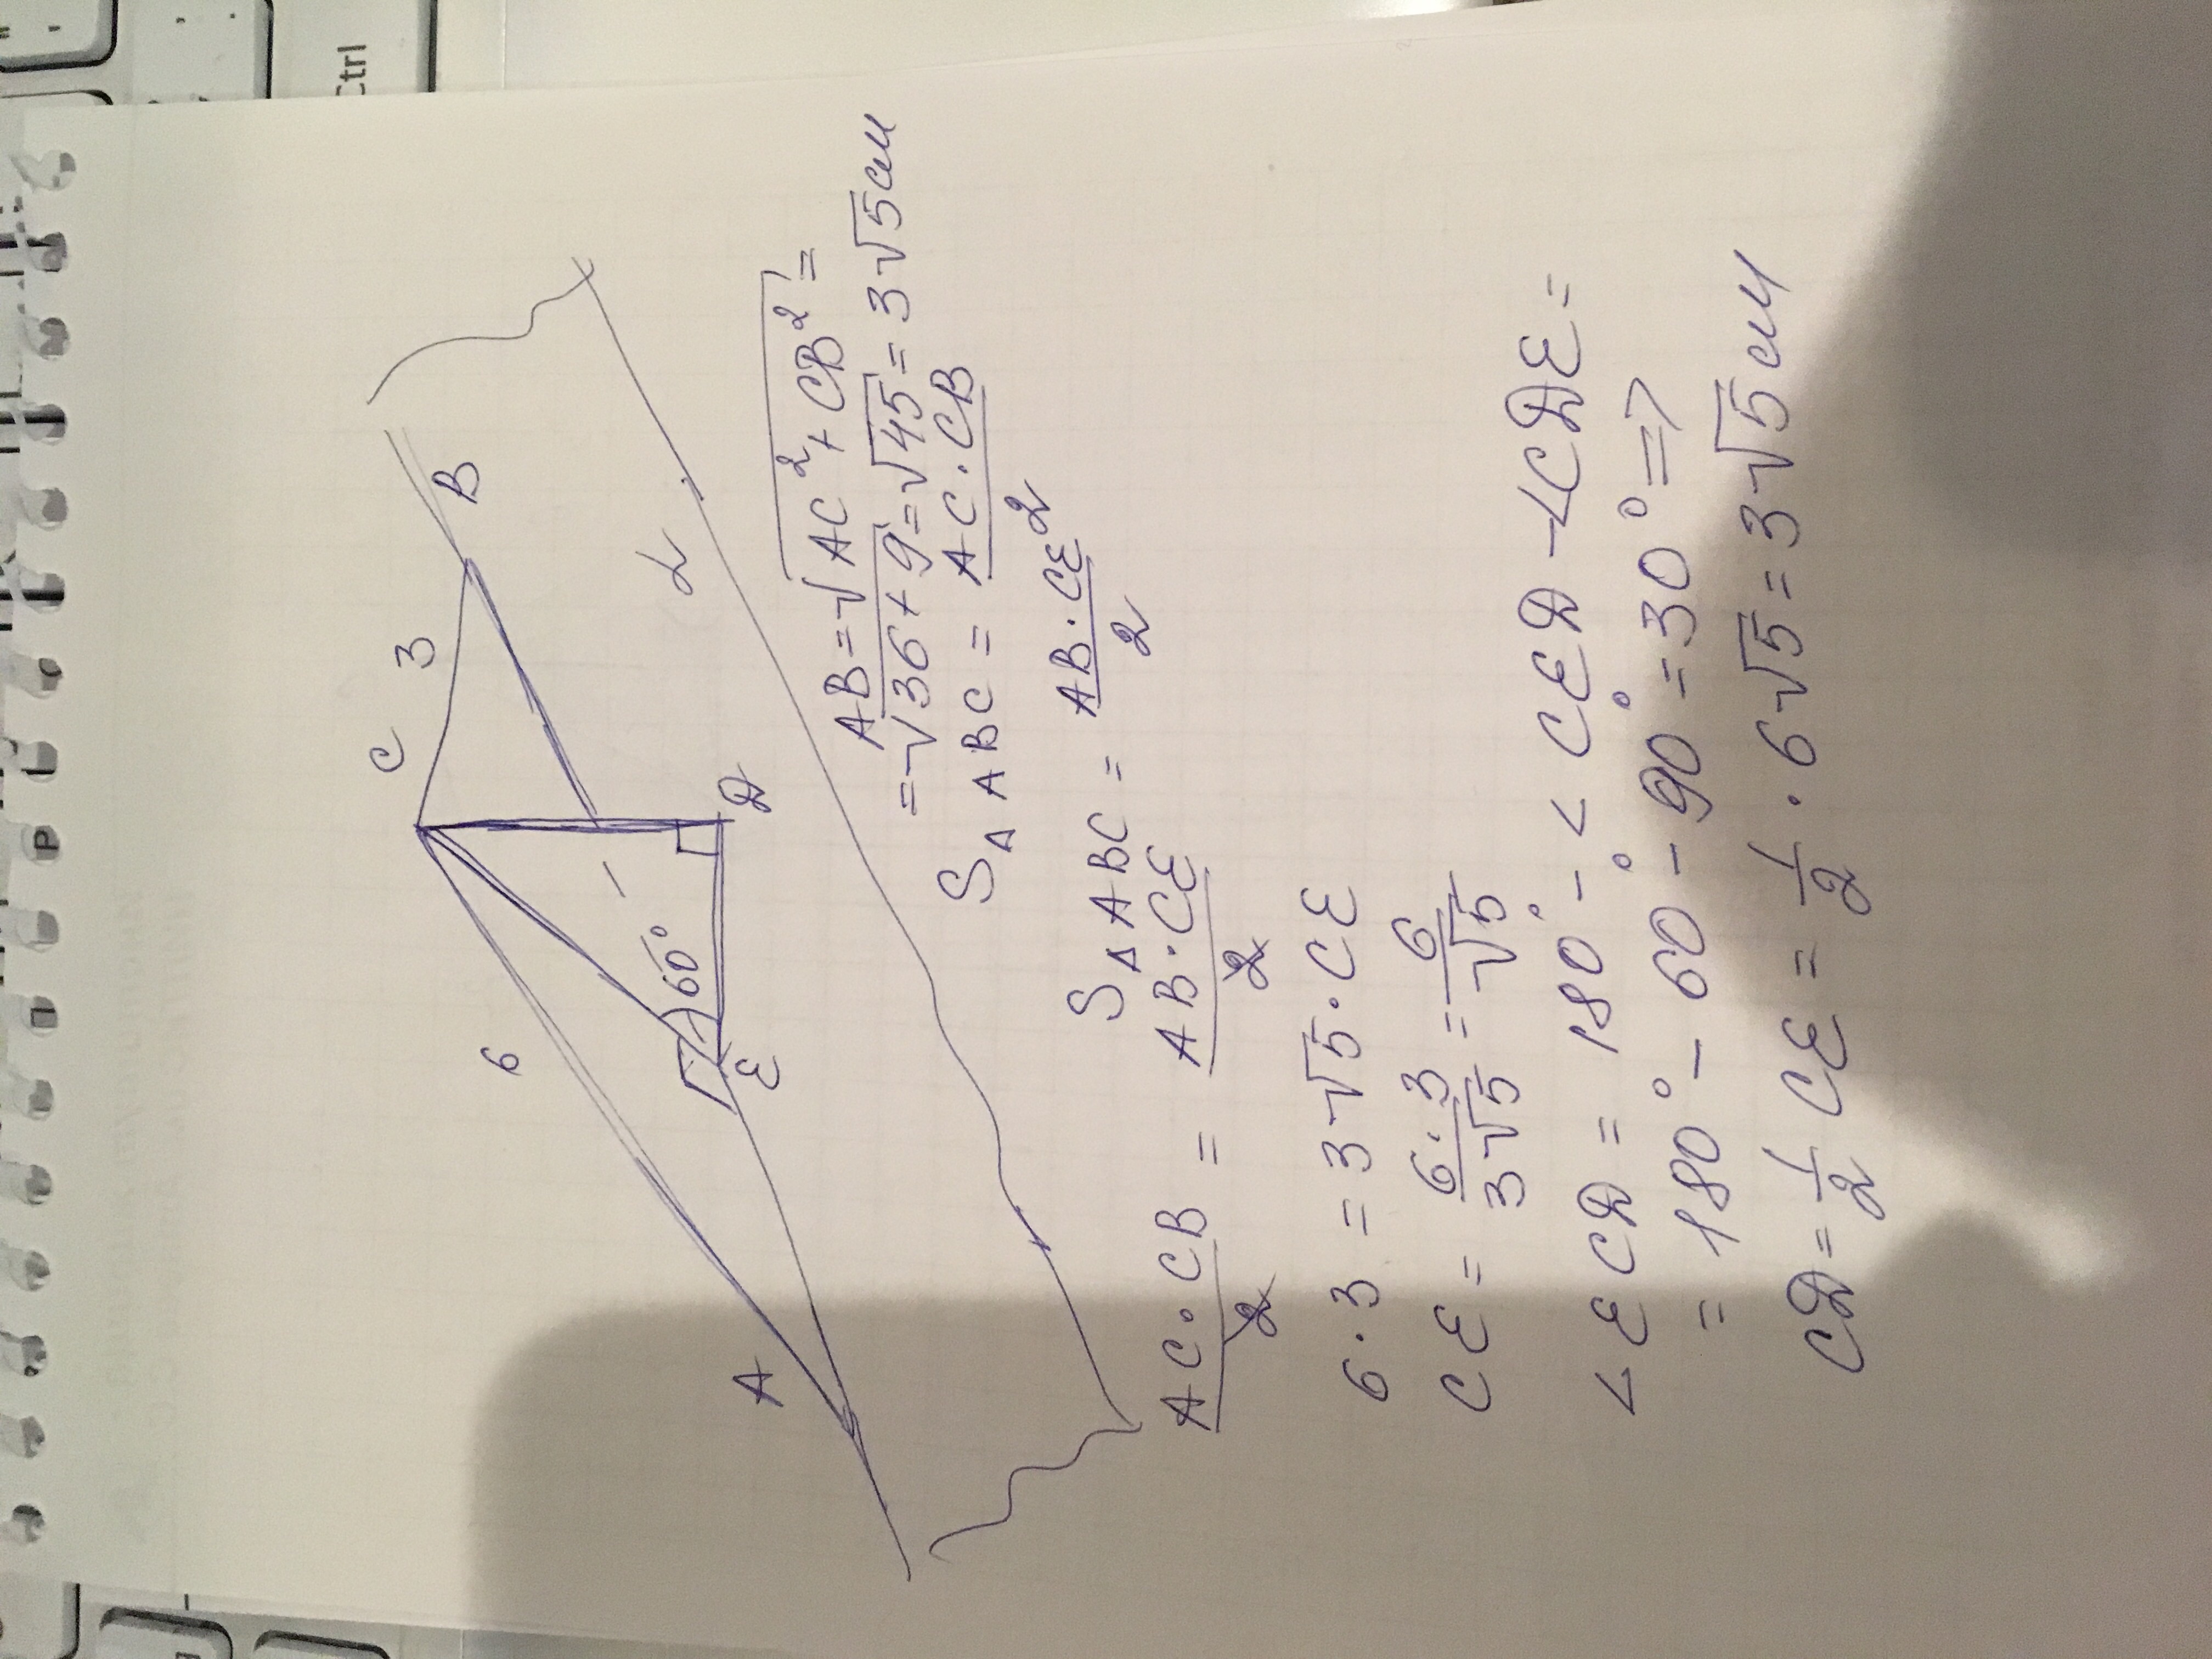 Ctrl
C
3
B
6
60°
A
E
D
α
AB=√AC²+CB²=
=√36+9=√45=3√5см
S△ABC = AC·CB/2
S△ABC = AB·CE/2
AC·CB/2 = AB·CE/2
6·3=3√5·CE
CE = 6·3/3√5 = 6/√5
∠ECD = 180° - ∠CED - ∠CDE =
= 180° - 60° - 90° = 30° =>
CD = 1/2 CE = 1/2 · 6√5 = 3√5 см